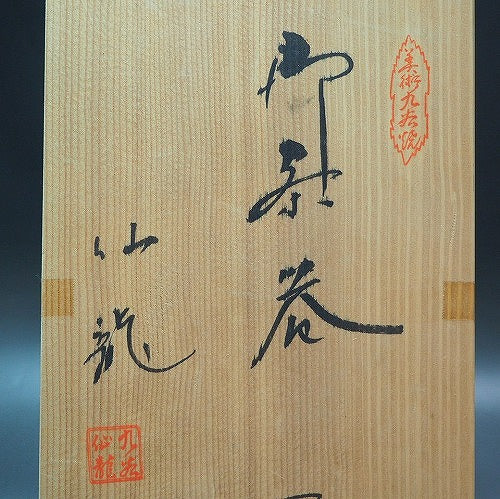 美術九谷焼
御茶器
仙龍
九谷
仙龍